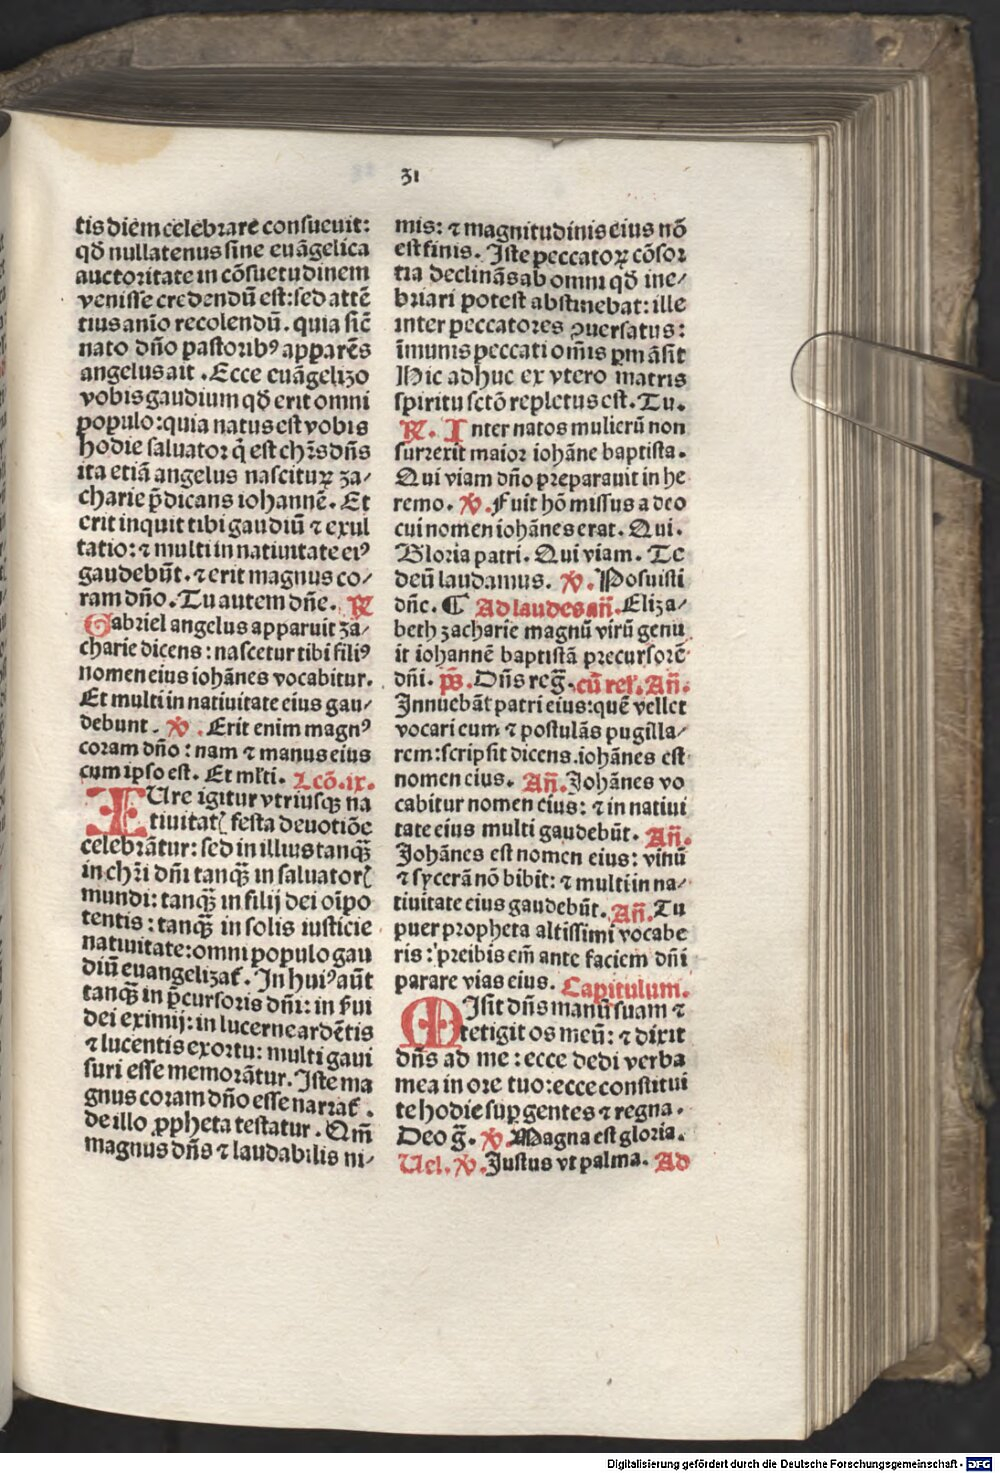 31
tis diem celebrare consueuit:
qđ nullatenus sine euãgelica
auctoritate in cõsuetudinem
venisse credendũ est: sed attẽ
tius anĩo recolendũ. quia sic̃
nato dño pastoribꝰ apparẽs
angelus ait. Ecce euãgelizo
vobis gaudium qđ erit omni
populo: quia natus est vobis
hodie saluator q̃ est chr̃s dñs
ita etiã angelus nasciturꝝ za⸗
charie p̃dicans iohannẽ. Et
erit inquit tibi gaudiũ ⁊ exul
tatio: ⁊ multi in natiuitate eiꝰ
gaudebũt. ⁊ erit magnus co⸗
ram dño. Tu autem dñe. ꝶ
Gabriel angelus apparuit za⸗
charie dicens: nascetur tibi filiꝰ
nomen eius iohãnes vocabitur.
Et multi in natiuitate eius gau⸗
debunt. ℣. Erit enim magnꝰ
coram dño: nam ⁊ manus eius
cum ipso est. Et ml̃ti. Lcõ. ix.
IUre igitur vtriusqꝫ na
tiuitatꝭ festa deuotiõe
celebrãtur: sed in illius tanqꝫ̃
in chr̃i dñi tanqꝫ̃ in saluatorꝭ
mundi: tanqꝫ̃ in filij dei oĩpo
tentis: tanqꝫ̃ in solis iusticie
natiuitate: omni populo gau
diũ euangelizat̃. In huiꝰ aũt
tanqꝫ̃ in p̃cursoris dñi: in s̃ui
dei eximij: in lucerne ardẽtis
⁊ lucentis exortu: multi gaui
suri esse memorãtur. Iste ma
gnus coram dño esse narrat̃.
de illo ꝓpheta testatur. Qm̃
magnus dñs ⁊ laudabilis ni⸗
mis: ⁊ magnitudinis eius nõ
est finis. Iste peccatoꝝ cõsor
tia declinãs ab omni qđ ine⸗
briari potest abstinebat: ille
inter peccatores ꝯuersatus:
ĩmunis peccati om̃is ꝑmãsit
Hic adhuc ex vtero matris
spiritu sctõ repletus est. Tu.
ꝶ. Inter natos mulierũ non
surrexit maior iohãne baptista.
Qui viam dño preparauit in he
remo. ℣. Fuit hõ missus a deo
cui nomen iohãnes erat. Qui.
Gloria patri. Qui viam. Te
deũ laudamus. ℣. Posuisti
dñe. ¶ Ad laudes añ. Eliza⸗
beth zacharie magnũ virũ genu
it iohannẽ baptistã precursorẽ
dñi. p̃s. Dñs reg̃. cũ rel̃. Añ.
Innuebãt patri eius: quẽ vellet
vocari eum ⁊ postulãs pugilla⸗
rem: scripsit dicens. iohãnes est
nomen eius. Añ. Iohãnes vo
cabitur nomen eius: ⁊ in natiui
tate eius multi gaudebũt. Añ.
Iohãnes est nomen eius: vinũ
⁊ sycerã nõ bibit: ⁊ multi in na⸗
tiuitate eius gaudebũt. Añ. Tu
puer propheta altissimi vocabe
ris: preibis em̃ ante faciem dñi
parare vias eius. Capitulum.
MIsit dñs manũ suam ⁊
tetigit os meũ: ⁊ dixit
dñs ad me: ecce dedi verba
mea in ore tuo: ecce constitui
te hodie suꝑ gentes ⁊ regna.
Deo g̃. ℣. Magna est gloria.
Uel. ℣. Iustus vt palma. Ad
Digitalisierung gefördert durch die Deutsche Forschungsgemeinschaft - DFG